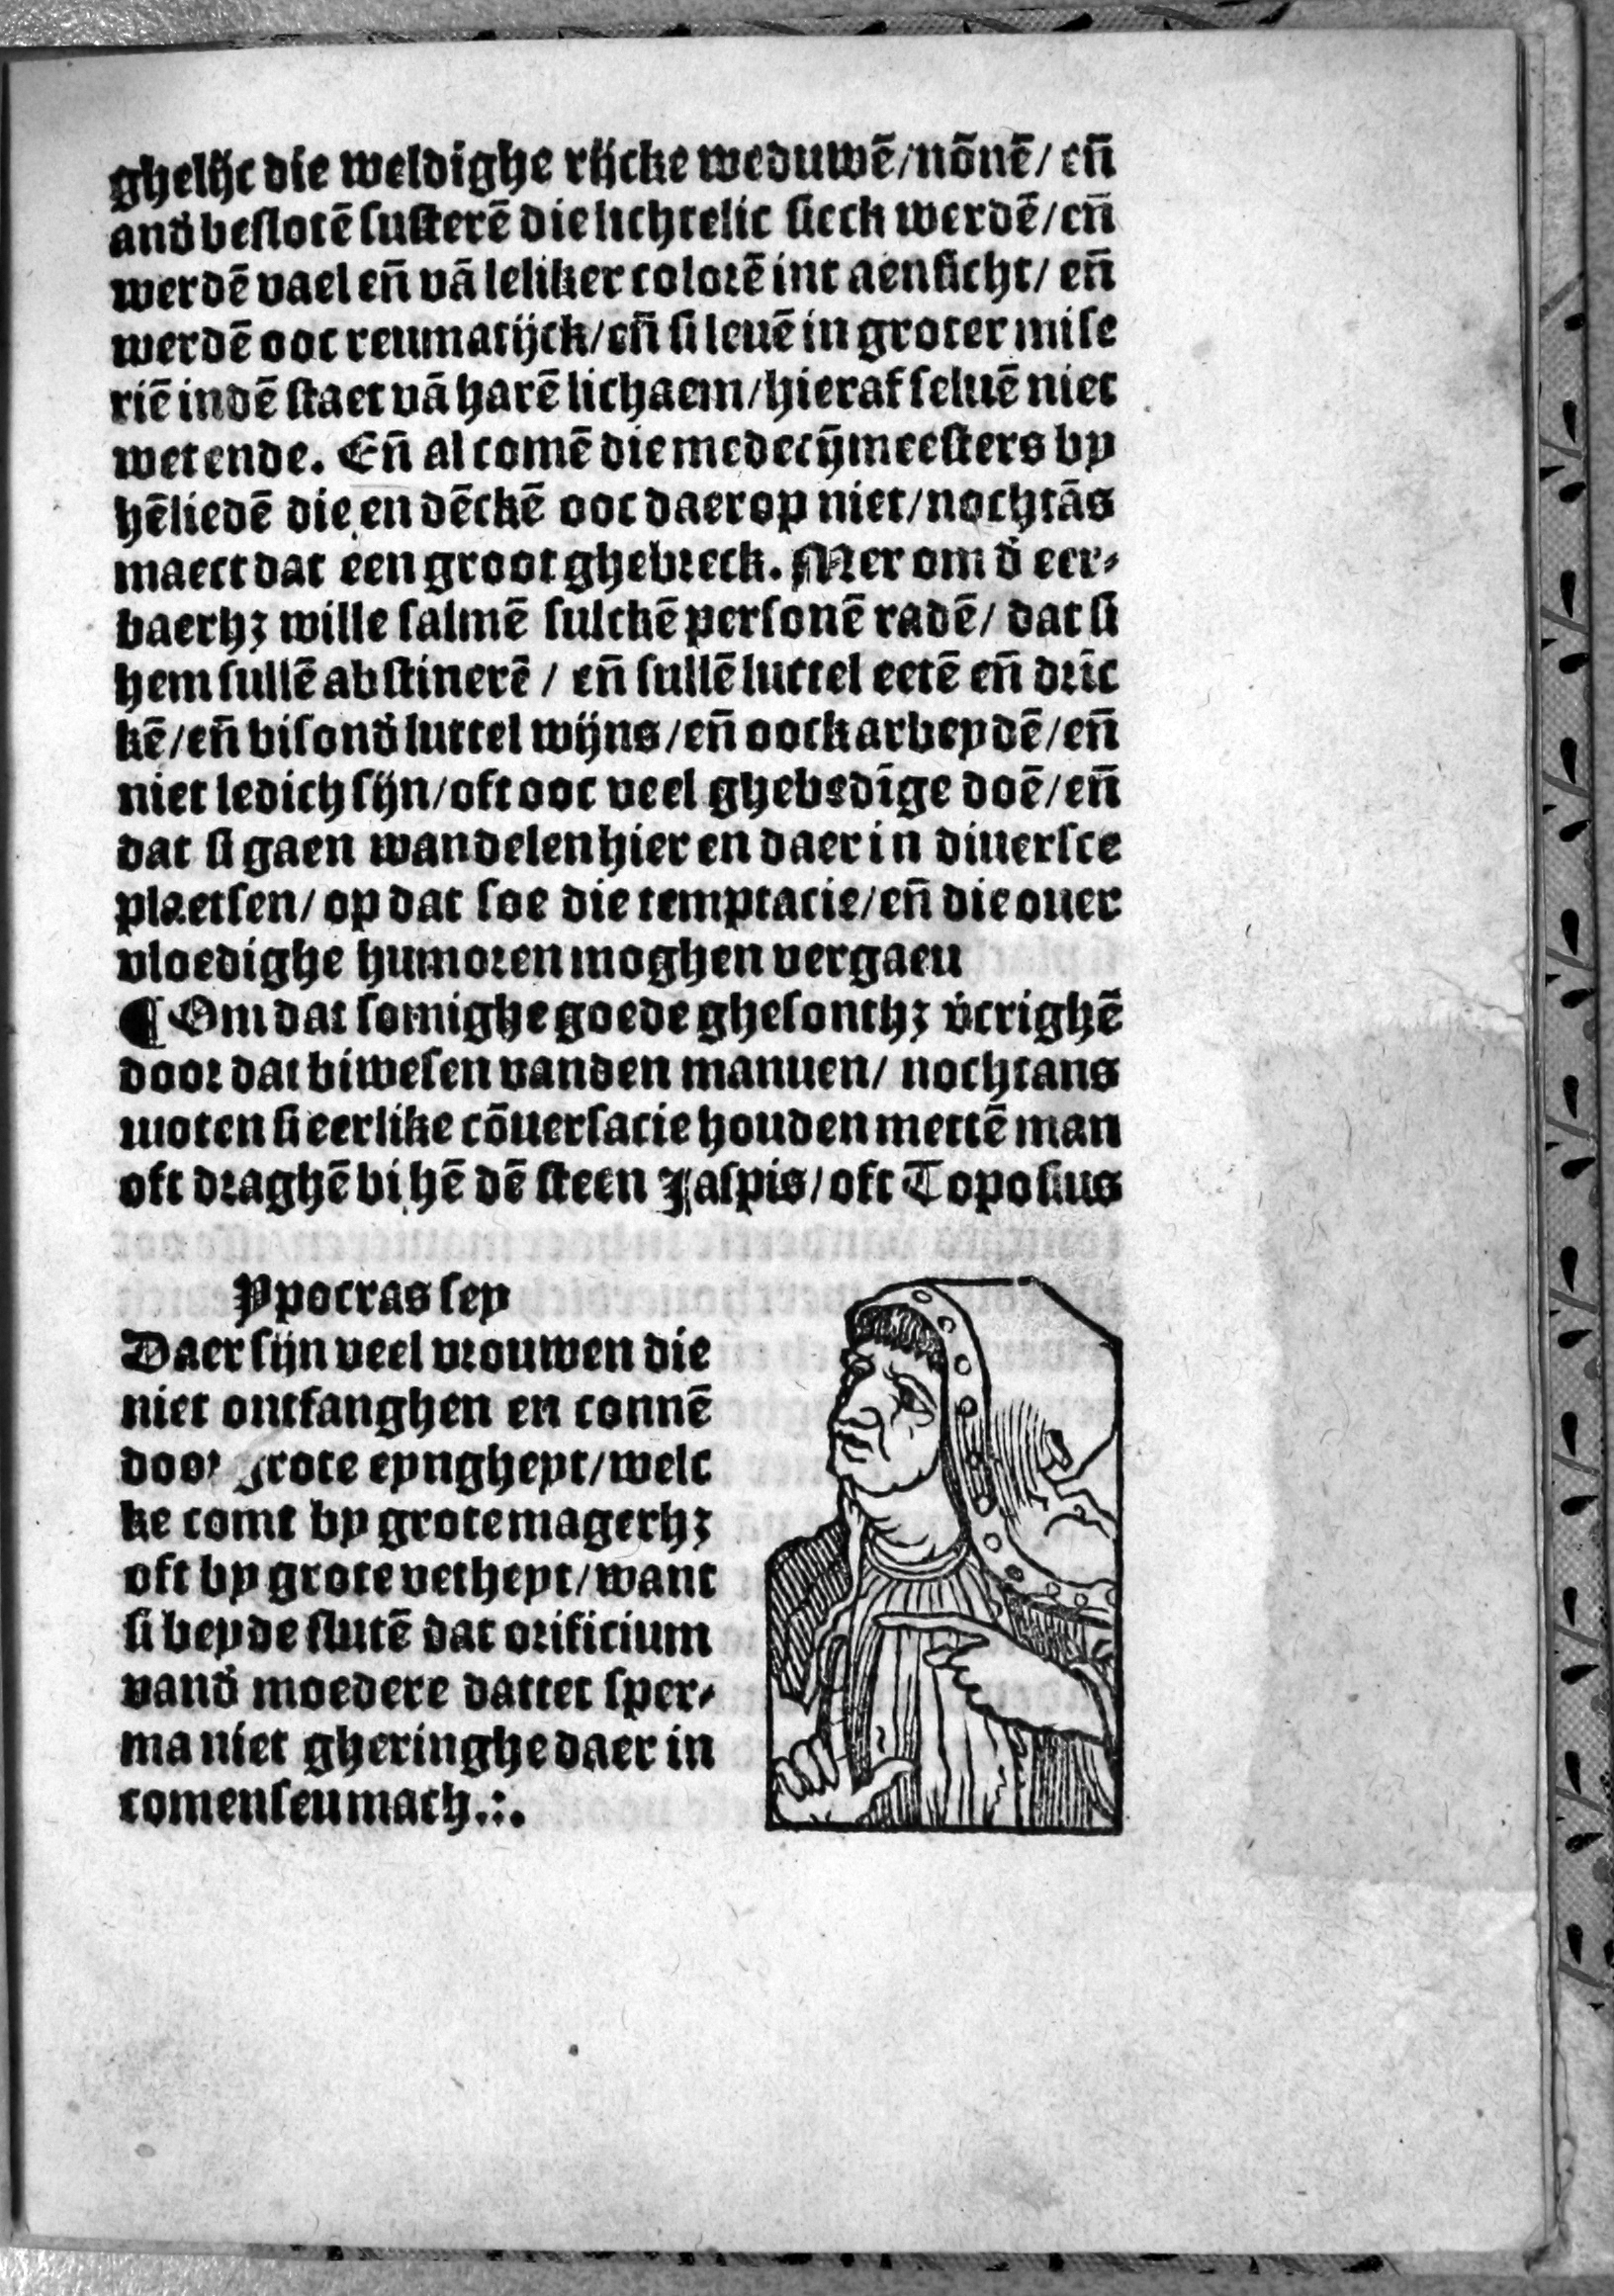 ghelijc die weldighe rijcke weduwē/nōnē/ eñ
anď beslotē susterē die lichtelic sieck werdē/eñ
werdē vael eñ vā leliker colorē int aensicht/ eñ
werdē ooc reumatijck/eñ si leuē in groter mise
riē indē staet vā harē lichaem/hieraf seluē niet
wetende. Eñ al comē die medecijmeesters by
hēliedē die en dēckē ooc daer op niet/nochtās
maect dat een groot ghebreck. Mer om ď eer⸗
baerhꝫ wille salmē sulckē personē radē/ dat si
hem sullē abstinerē / eñ sullē luttel eetē eñ drīc
kē/eñ bisonď luttel wijns/eñ oock arbeydē/eñ
niet ledich sijn/oft ooc veel ghebedīge doē/eñ
dat si gaen wandelen hier en daer in diuersce
plaetsen/ op dat soe die temptacie/eñ die ouer
vloedighe humoren moghen vergaeu
¶ Om dat somighe goede ghesonthꝫ v̄crighē
door dat biwesen vanden manuen/ nochtans
moten si eerlike cōuersacie houden mettē man
oft draghē bi hē dē steen Jaspis/oft Toposius
Ypocras sey
Daer sijn veel vrouwen die
niet ontfanghen en connē
door grote eyngheyt/welc
ke comt by grote magerhꝫ
oft by grote vetheyt/want
si beyde slutē dat orificium
vanď moedere dattet sper⸗
ma niet gheringhe daer in
comen seu mach.:.